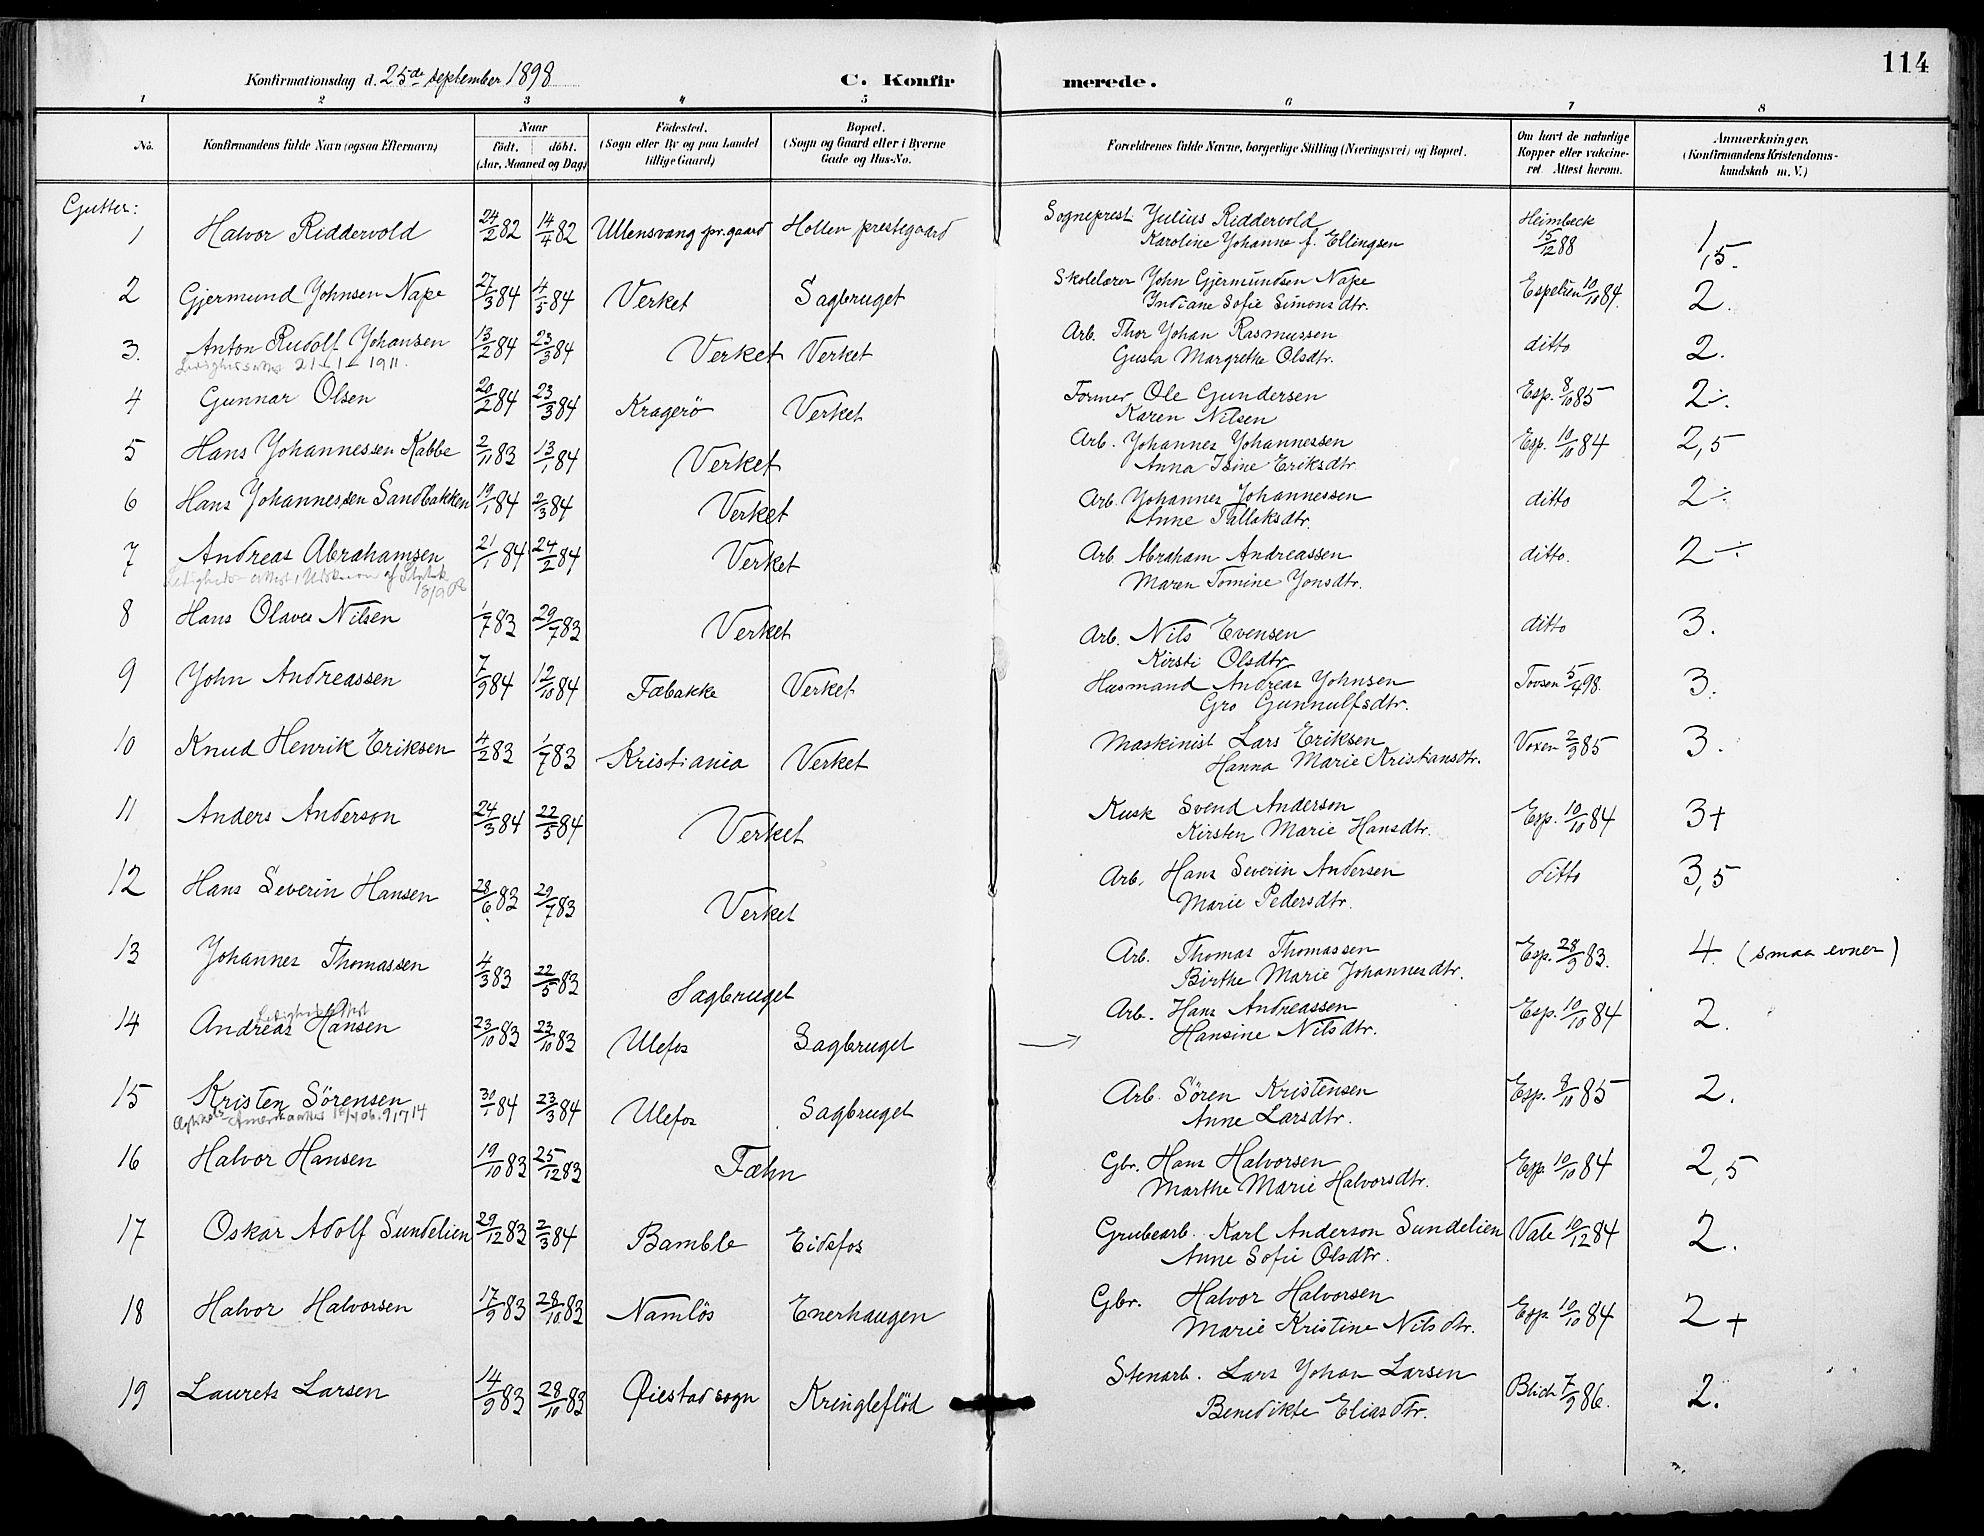 114
Konfirmationsdag d. 25de september 1898 C. Konfirmerede.
1 2 3 4 5 6 7 8
No. Konfirmandens fulde Navn (ogsaa Efternavn) Naar Födt. döbt. (Aar, Maaned og Dag) Födested. (Sogn eller By og paa Landet tillige Gaard) Bopæl. (Sogn og Gaard eller i Byerne Gade og Hus-No. Forældrenes fulde Navne, borgerlige Stilling (Næringsvei) og Bopæl. Om havt de naturlige Kopper eller vakcineret. Attest herom. Anmærkninger. (Konfirmandens Kristendomskundskab m. V.)
Gutter:
1 Halvor Riddervold 24/2 82 14/4 82 Ullensvang pr.gaard Hollen prestegaard Sogneprest Julius Riddervold Karoline Johanne f. Ellingsen Heimbeck 15/12 88 1,5.
2 Gjermund Johnsen Nape 27/3 84 4/5 84 Verket Sagbruget Skolelærer John Gjermundsen Nape Indiane Sofie Simonsdtr. Espelien 10/10 84. 2.
3. Anton Rudolf Johansen 13/2 84 23/3 84 Verket Verket Arb. Thor Johan Rasmussen Gusta Margrethe Olsdtr. ditto 2.
21-1-1911.
4 Gunnar Olsen 20/2 84 23/3 84 Kragerö Verket Former Ole Gundersen Karen Nilsen Esp. 8/10 85 2÷.
5 Hans Johannessen Kabbe 2/11 83 13/1 84 Verket Arb. Johannes Johannessen Anna Isine Eriksdtr. Esp. 10/10 84 2,5
6 Hans Johannessen Sandbakken 19/1 84 2/3 84 Verket Arb. Johannes Johannessen Anne Tallaksdtr. ditto 2÷
7 Andreas Abrahamsen 21/1 84 24/2 84 Verket Arb. Abraham Andreassen Maren Tomine Jonsdtr. ditto. 2÷
8 Hans Olaves Nilsen 1/7 83 29/7 83 Verket Arb. Nils Evensen Kirsti Olsdtr. ditto 3.
9 John Andreassen 7/9 84 12/10 84 Fæbakke Verket Husmand Andreas Johnsen Gro Gunnulfsdtr. Tovsen 5/4 98. 3.
10 Knud Henrik Eriksen 4/2 83 1/7 83 Kristiania Verket Maskinist Lars Eriksen Hanna Marie Kristiansdtr. Voxen 2/9 85 3.
11 Anders Anderson 24/3 84 22/5 84 Verket Kusk Svend Anderson Kirsten Marie Hansdtr. Esp. 10/10 84 3+
12 Hans Severin Hansen 28/6 83 29/7 83 Verket Arb. Hans Severin Andersen Marie Pedersdtr. ditto 3,5
13 Johannes Thomassen 4/3 83 22/5 83 Sagbruget Arb. Thomas Thomassen Birthe Marie Johannesdtr. Esp. 28/9 83. 4. (smaa evner)
14 Andreas Hansen 23/10 83 23/10 83 Ulefos Sagbruget Arb. Hans Andreassen Hansine Nilsdtr. Esp. 10/10 84 2.
15 Kristen Sörensen 31/1 84 23/3 84 Ulefos Sagbruget Arb. Sören Kristensen Anne Larsdtr. Esp. 8/11 85 2.
16 Halvor Hansen 19/10 83 25/12 83 Fæhn Gbr. Hans Halvorsen Marthe Marie Halvorsdtr. Esp. 10/10 84 2,5
17 Oskar Adolf Sundelien 29/12 83 2/3 84 Bamble Eidsfos Grubearb. Karl Anderson Sundelien Anne Sofie Olsdtr. Vale 10/12 84 2.
18 Halvor Halvorsen 17/9 83 28/10 83 Namlös Enerhaugen Gbr. Halvor Halvorsen Marie Kristine Nilsdtr. Esp. 10/10 84 2+
19 Laurets Larsen 14/9 83 28/10 83 Øiestad sogn Kringleflöd Stenarb. Lars Johan Larsen Benedikte Eliasdtr. Blich 7/9 86. 2.